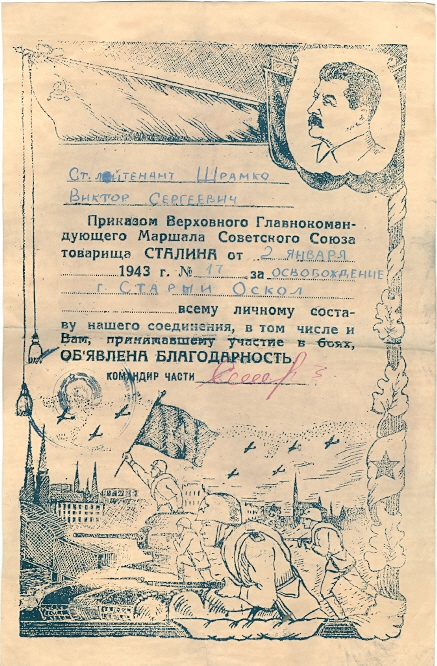 Ст. лейтенант Шрамко
Виктор Сергеевич
Приказом Верховного Главнокоман-
дующего Маршала Советского Союза
товарища СТАЛИНА от 2 января
1943 г. № 17 за освобождение
г Старый Оскол
всему личному соста-
ву нашего соединения, в том числе и
Вам, принимавшему участие в боях,
ОБ'ЯВЛЕНА БЛАГОДАРНОСТЬ.
КОМАНДИР ЧАСТИ